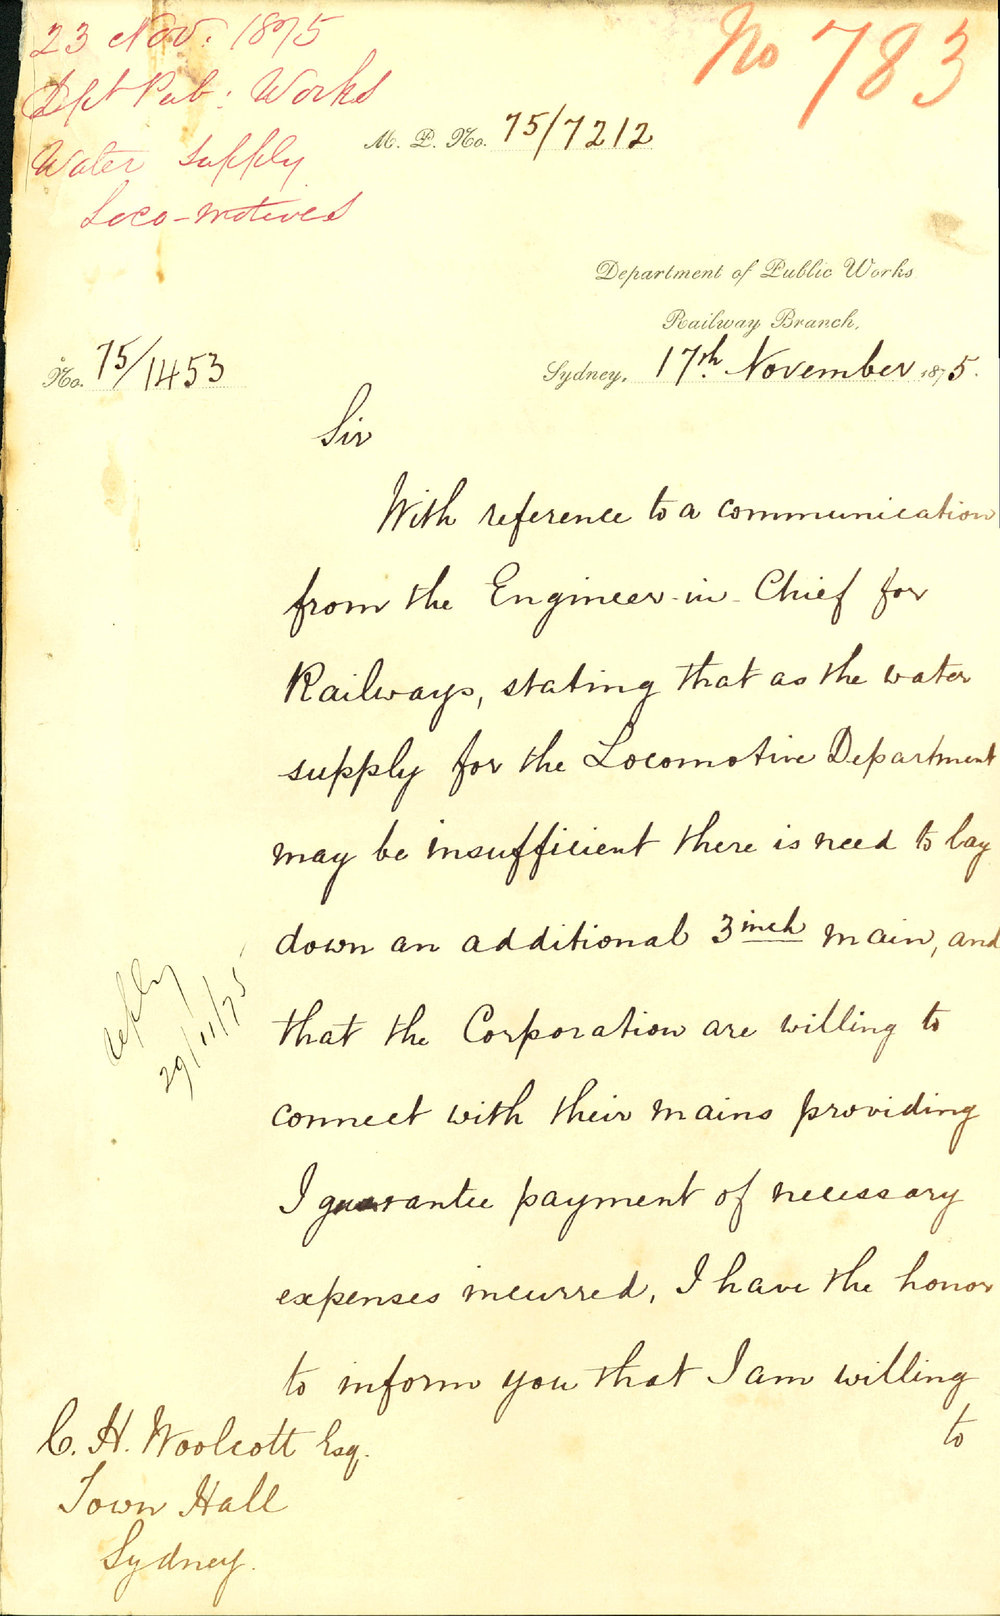 23 Nov. 1875
Dpt Pub: Works
Water supply
Loco-motives
No 783
M. P. No. 75/7212
Department of Public Works
Railway Branch,
No. 75/1453
Sydney, 17th November 1875.
Sir
With reference to a communication
from the Engineer-in-Chief for
Railways, stating that as the water
supply for the Locomotive Department
may be insufficient there is need to lay
down an additional 3 inch main, and
that the Corporation are willing to
connect with their mains providing
I guarantee payment of necessary
expenses incurred, I have the honor
to inform you that I am willing
to
reply
29/11/75
C. H. Woolcott Esq.
Town Hall
Sydney.